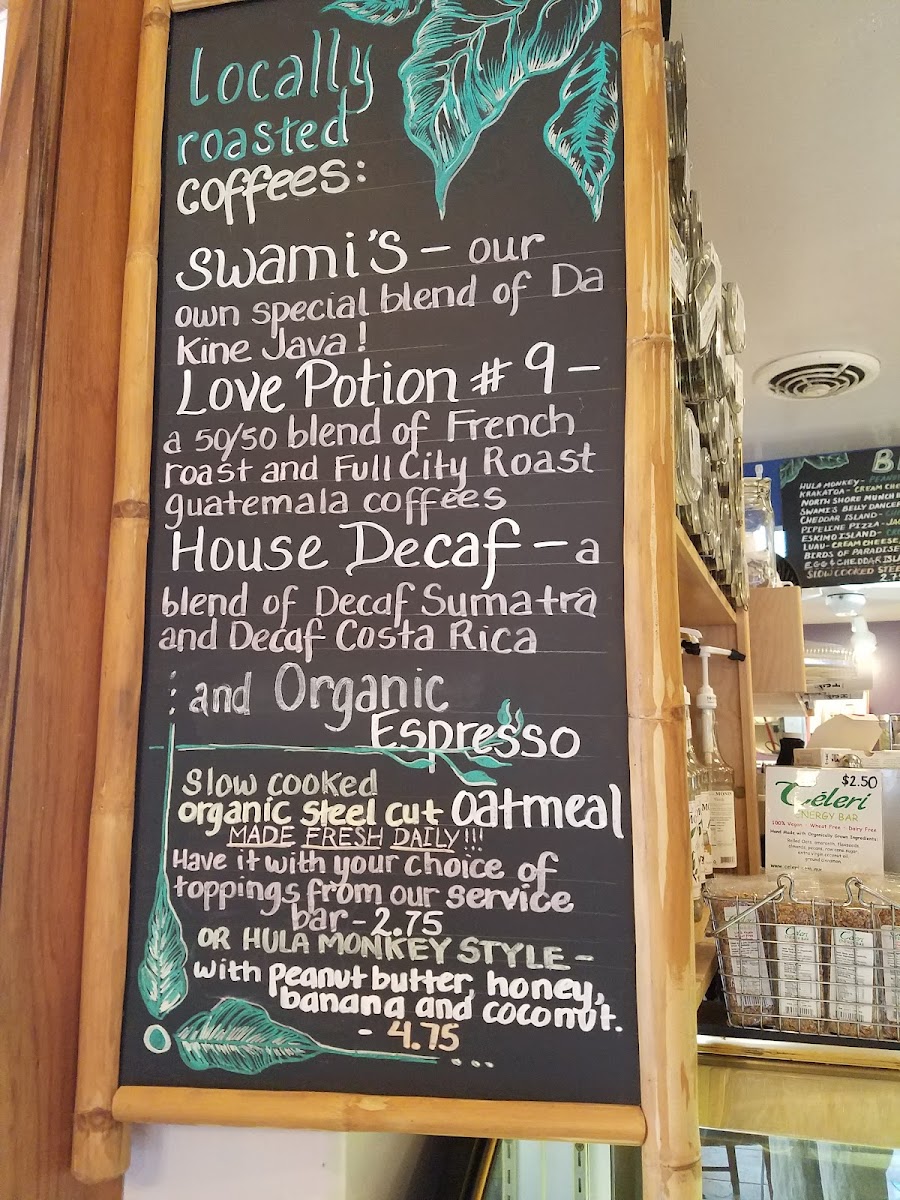 Locally
roasted
coffees:
Swami's - our
own special blend of Da
Kine Java!
Love Potion #9 -
a 50/50 blend of French
roast and Full City Roast
guatemala coffees
House Decaf - a
blend of Decaf Sumatra
and Decaf Costa Rica
: and Organic
Espresso
Slow cooked
organic steel cut oatmeal
MADE FRESH DAILY!!!
Have it with your choice of
toppings from our service
bar - 2.75
OR HULA MONKEY STYLE -
with peanut butter, honey,
banana and coconut.
- 4.75
HULA MONKEY-
KRAKATOA- CREAM CHE
NORTH SHORE MUNCH
SWAMI'S BELLY DANCER
CHEDDAR ISLAND-
PIPELINE PIZZA-
ESKIMO ISLAND-
LUAU- CREAM CHEESE,
BIRDS OF PARADISE
EGG & CHEDDAR ISL
SLOW COOKED STEE
2.7
$2.50
Céleri
ENERGY BAR
100% Vegan - Wheat Free - Dairy Free
Hand Made with Organically Grown Ingredients:
Céleri
Céleri